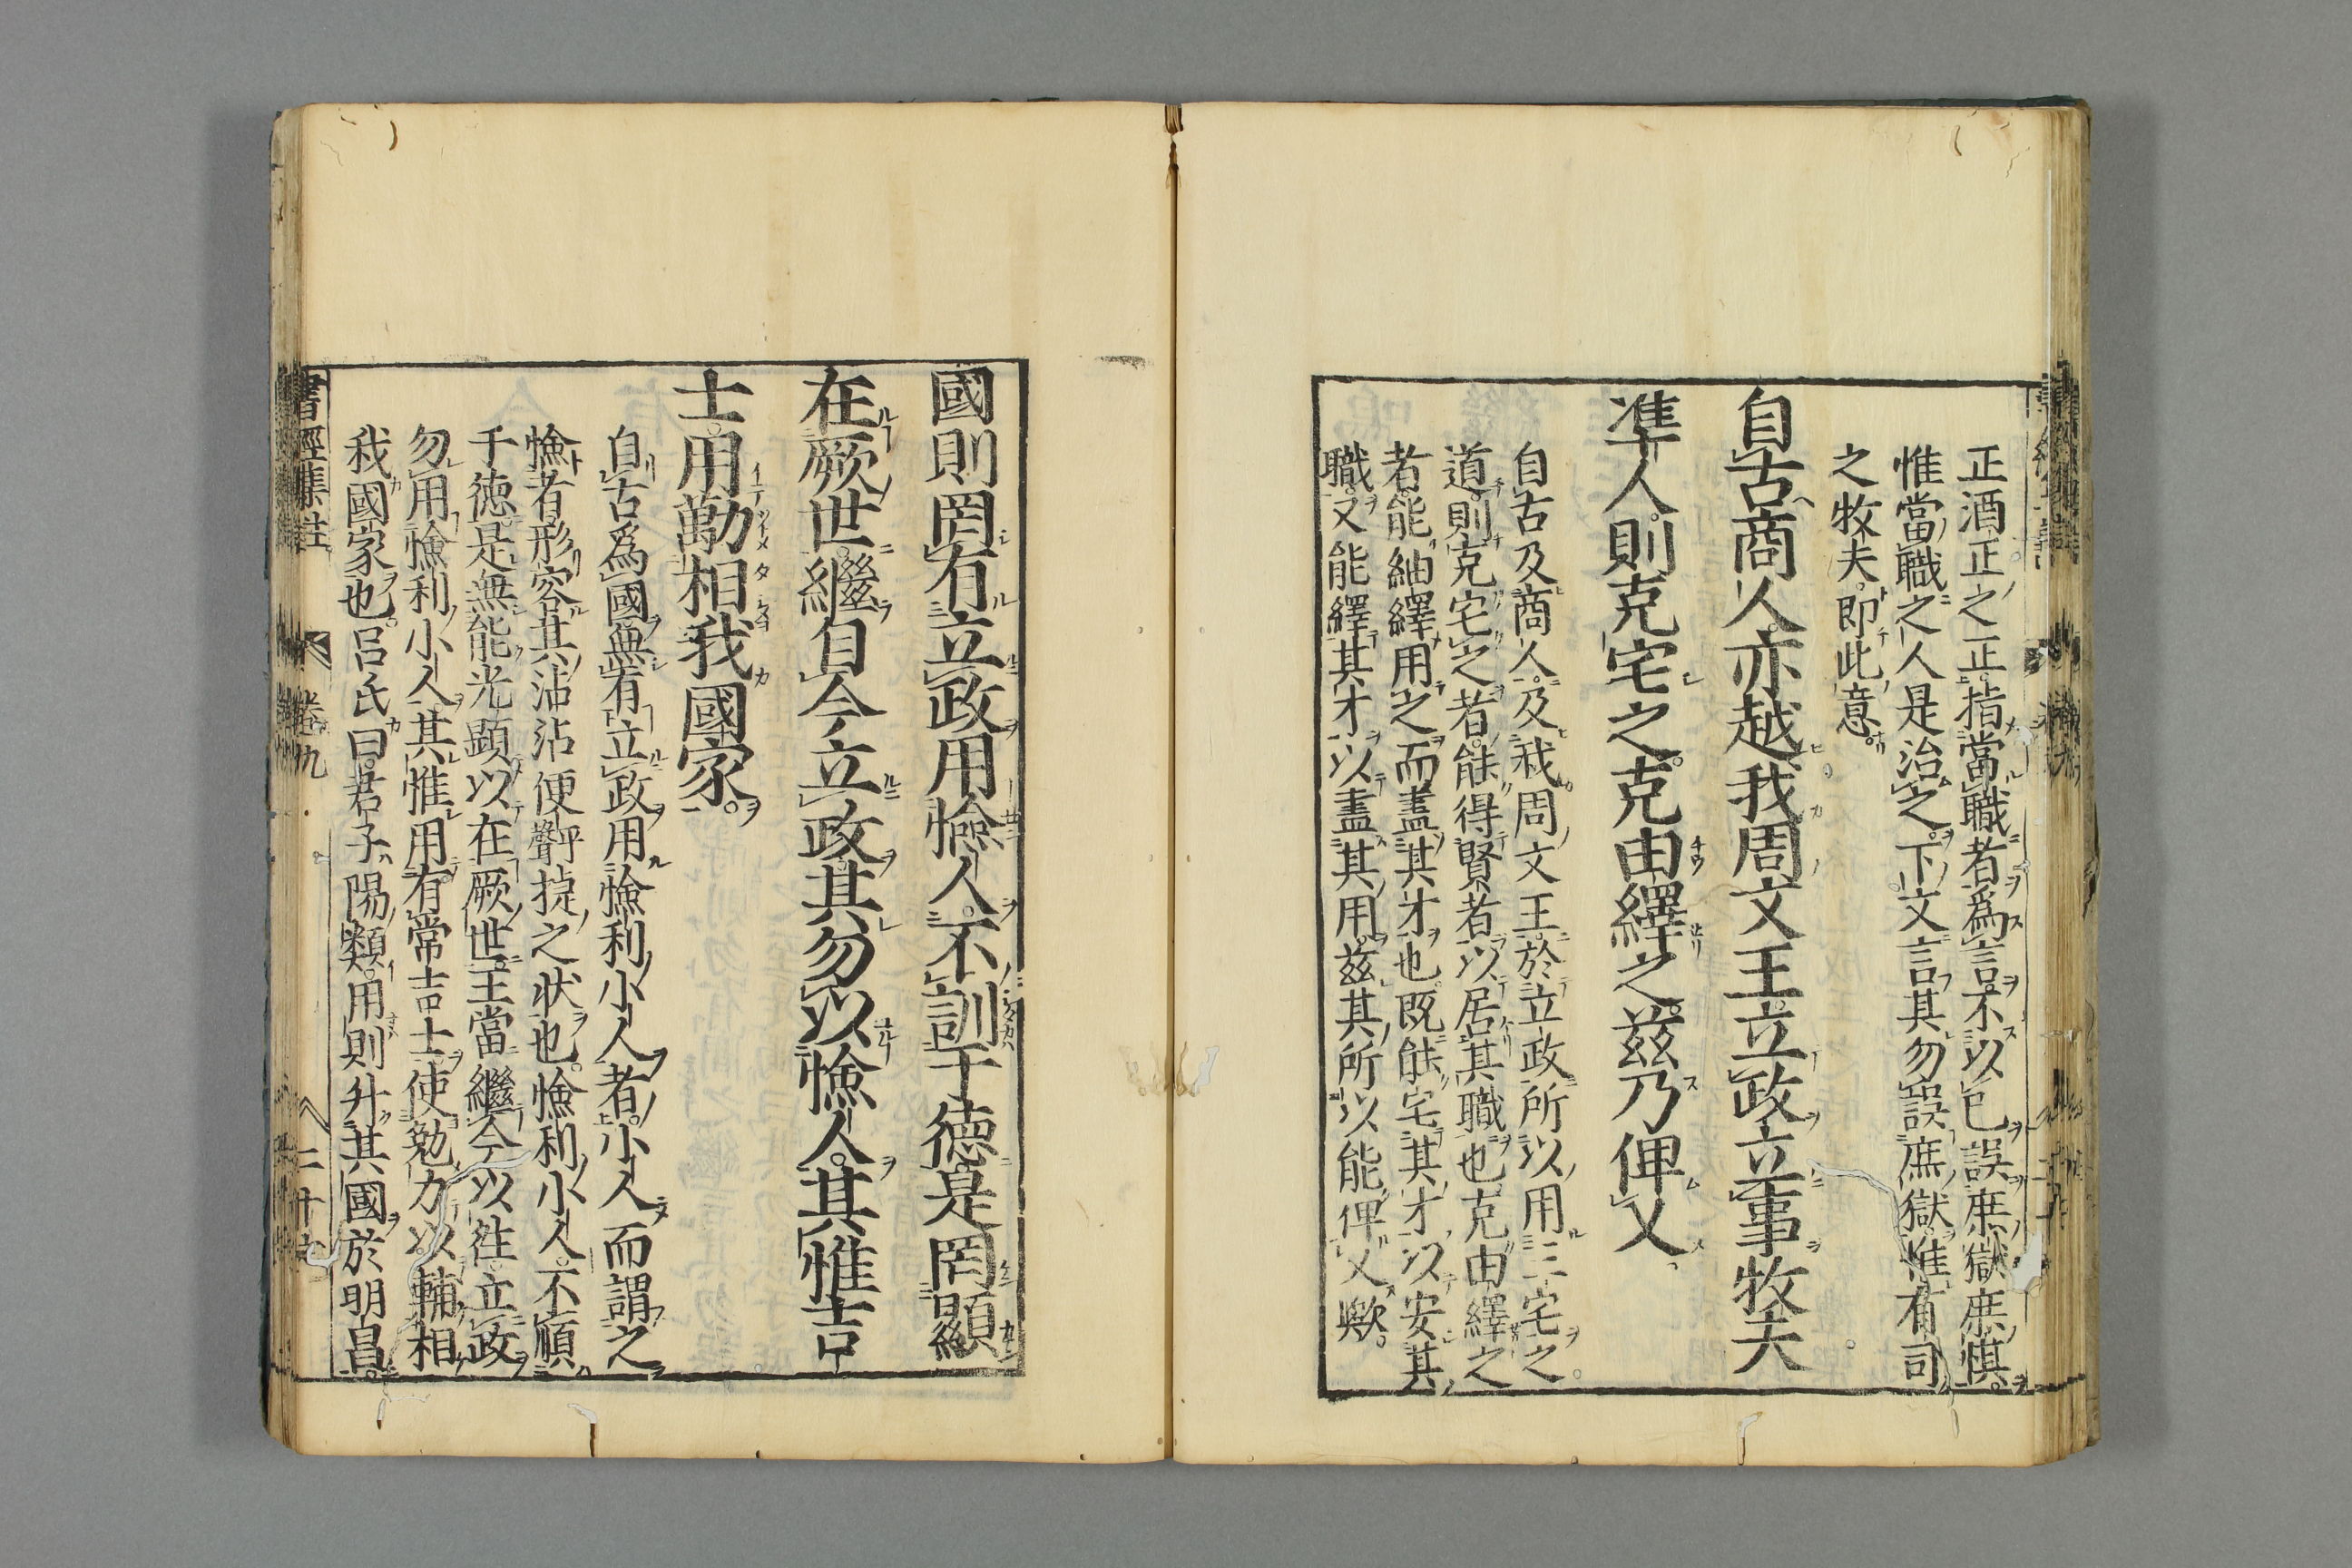 正酒正之正指當職者爲言不以已誤庶獄庶愼
惟當職之人是治之下文言其勿誤庶獄惟有司
之牧夫即此意
自古商人亦越我周文王立政立事牧夫
準人則克宅之克由繹之茲乃俾乂
自古及商人及我周文王於立政所以用三宅之
道則克宅之者能得賢者以居其職也克由繹之
者能紬繹用之而盡其才也既能宅其才以安其
職又能繹其才以盡其用茲其所以能俾乂歟
國則罔有立政用憸人不訓于德是罔顯
在厥世繼自今立政其勿以憸人其惟吉
士用勱相我國家
自古爲國無有立政用憸利小人者小人而謂之
憸者形容其沾沾便平聲捷之狀也憸利小人不順
于德是無能光顯以在厥世王當繼今以往立政
勿用憸利小人其惟用有常吉士使勉力以輔相
我國家也呂氏曰君子陽類用則升其國於明昌
書經集註 卷九 二十六